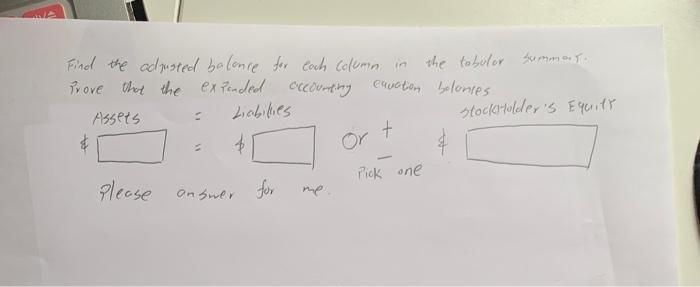 Find the adjusted balance for each column in the tabular summary.
Prove that the expanded accounting equation balances
Assets = Liabilities Stockholder's Equity
$ = $ or + - $
Pick one
Please answer for me.